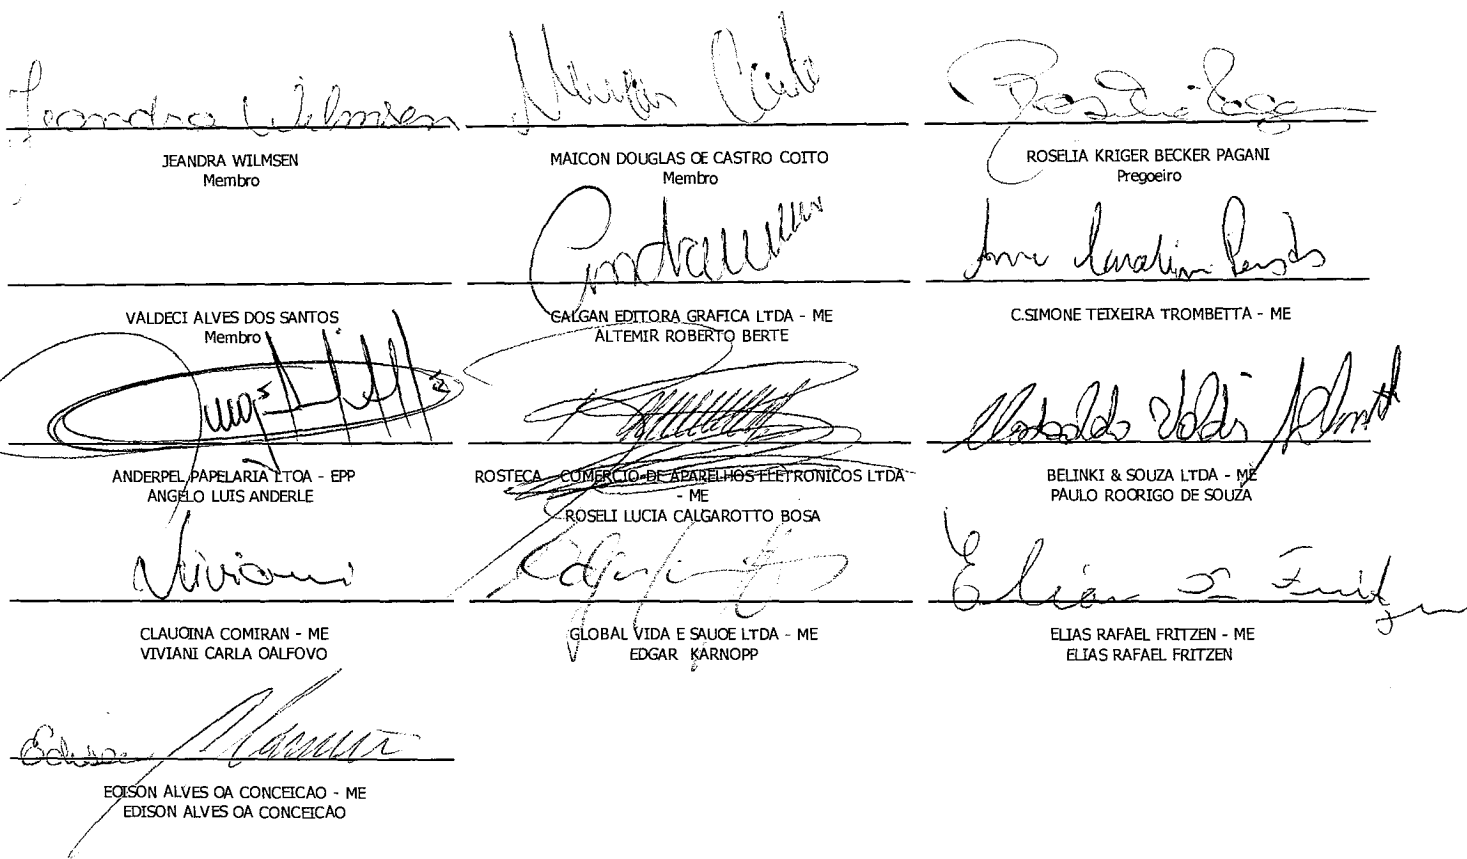 Jeandra Wilmsen
JEANDRA WILMSEN
Membro
MAICON DOUGLAS DE CASTRO COITO
Membro
ROSELIA KRIGER BECKER PAGANI
Pregoeiro
VALDECI ALVES DOS SANTOS
Membro
GALGAN EDITORA GRAFICA LTDA - ME
ALTEMIR ROBERTO BERTE
C.SIMONE TEIXEIRA TROMBETTA - ME
ANDERPEL PAPELARIA LTOA - EPP
ANGELO LUIS ANDERLE
ROSTECA - COMERCIO DE APARELHOS ELETRONICOS LTDA
- ME
ROSELI LUCIA CALGAROTTO BOSA
BELINKI & SOUZA LTDA - ME
PAULO ROORIGO DE SOUZA
Viviani
CLAUOINA COMIRAN - ME
VIVIANI CARLA OALFOVO
GLOBAL VIDA E SAUOE LTDA - ME
EDGAR KARNOPP
Elias R Fritzen
ELIAS RAFAEL FRITZEN - ME
ELIAS RAFAEL FRITZEN
Edison
EOISON ALVES OA CONCEICAO - ME
EDISON ALVES OA CONCEICAO